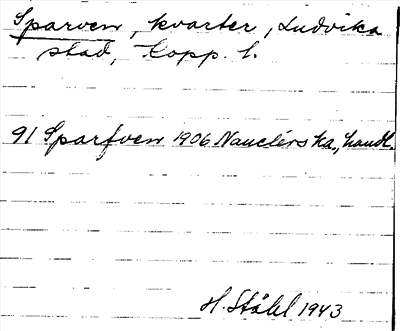 Sparven, kvarter, Ludvika
stad, Kopp. l.
91 Sparfven 1906 Nauclérs ka., handl.
H. Ståhl 1943